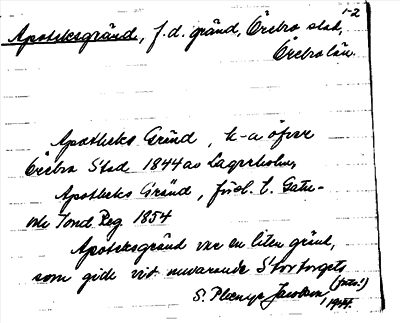 1-2
Apoteksgränd, f.d. gränd, Örebro stad,
Örebro län.
Apotheks Gränd, k-a öfver
Örebro Stad 1844 av Lagerholm,
Apotheks Gränd, förel. t. Gatu-
och Tond. Reg. 1854
Apoteksgränd var en liten gränd,
som gick vid nuvarande Stortorgets
S. Jacobson, 1944.